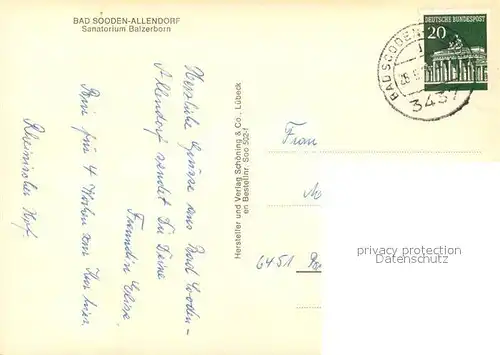 BAD SOODEN-ALLENDORF
Sanatorium Balzerborn
Herzliche Grüsse aus Bad Sooden-
Allendorf sendet Dir Deine
Freundin
Bin für 4 Wochen zur Kur hier.
Rheinischer Hof.
Hersteller und Verlag Schöning & Co., Lübeck
en Bestellnr. Soo 502/1
DEUTSCHE BUNDESPOST
20
BAD SOODEN-
3437
Frau
6451
privacy protection
ansichtskartenversand.com